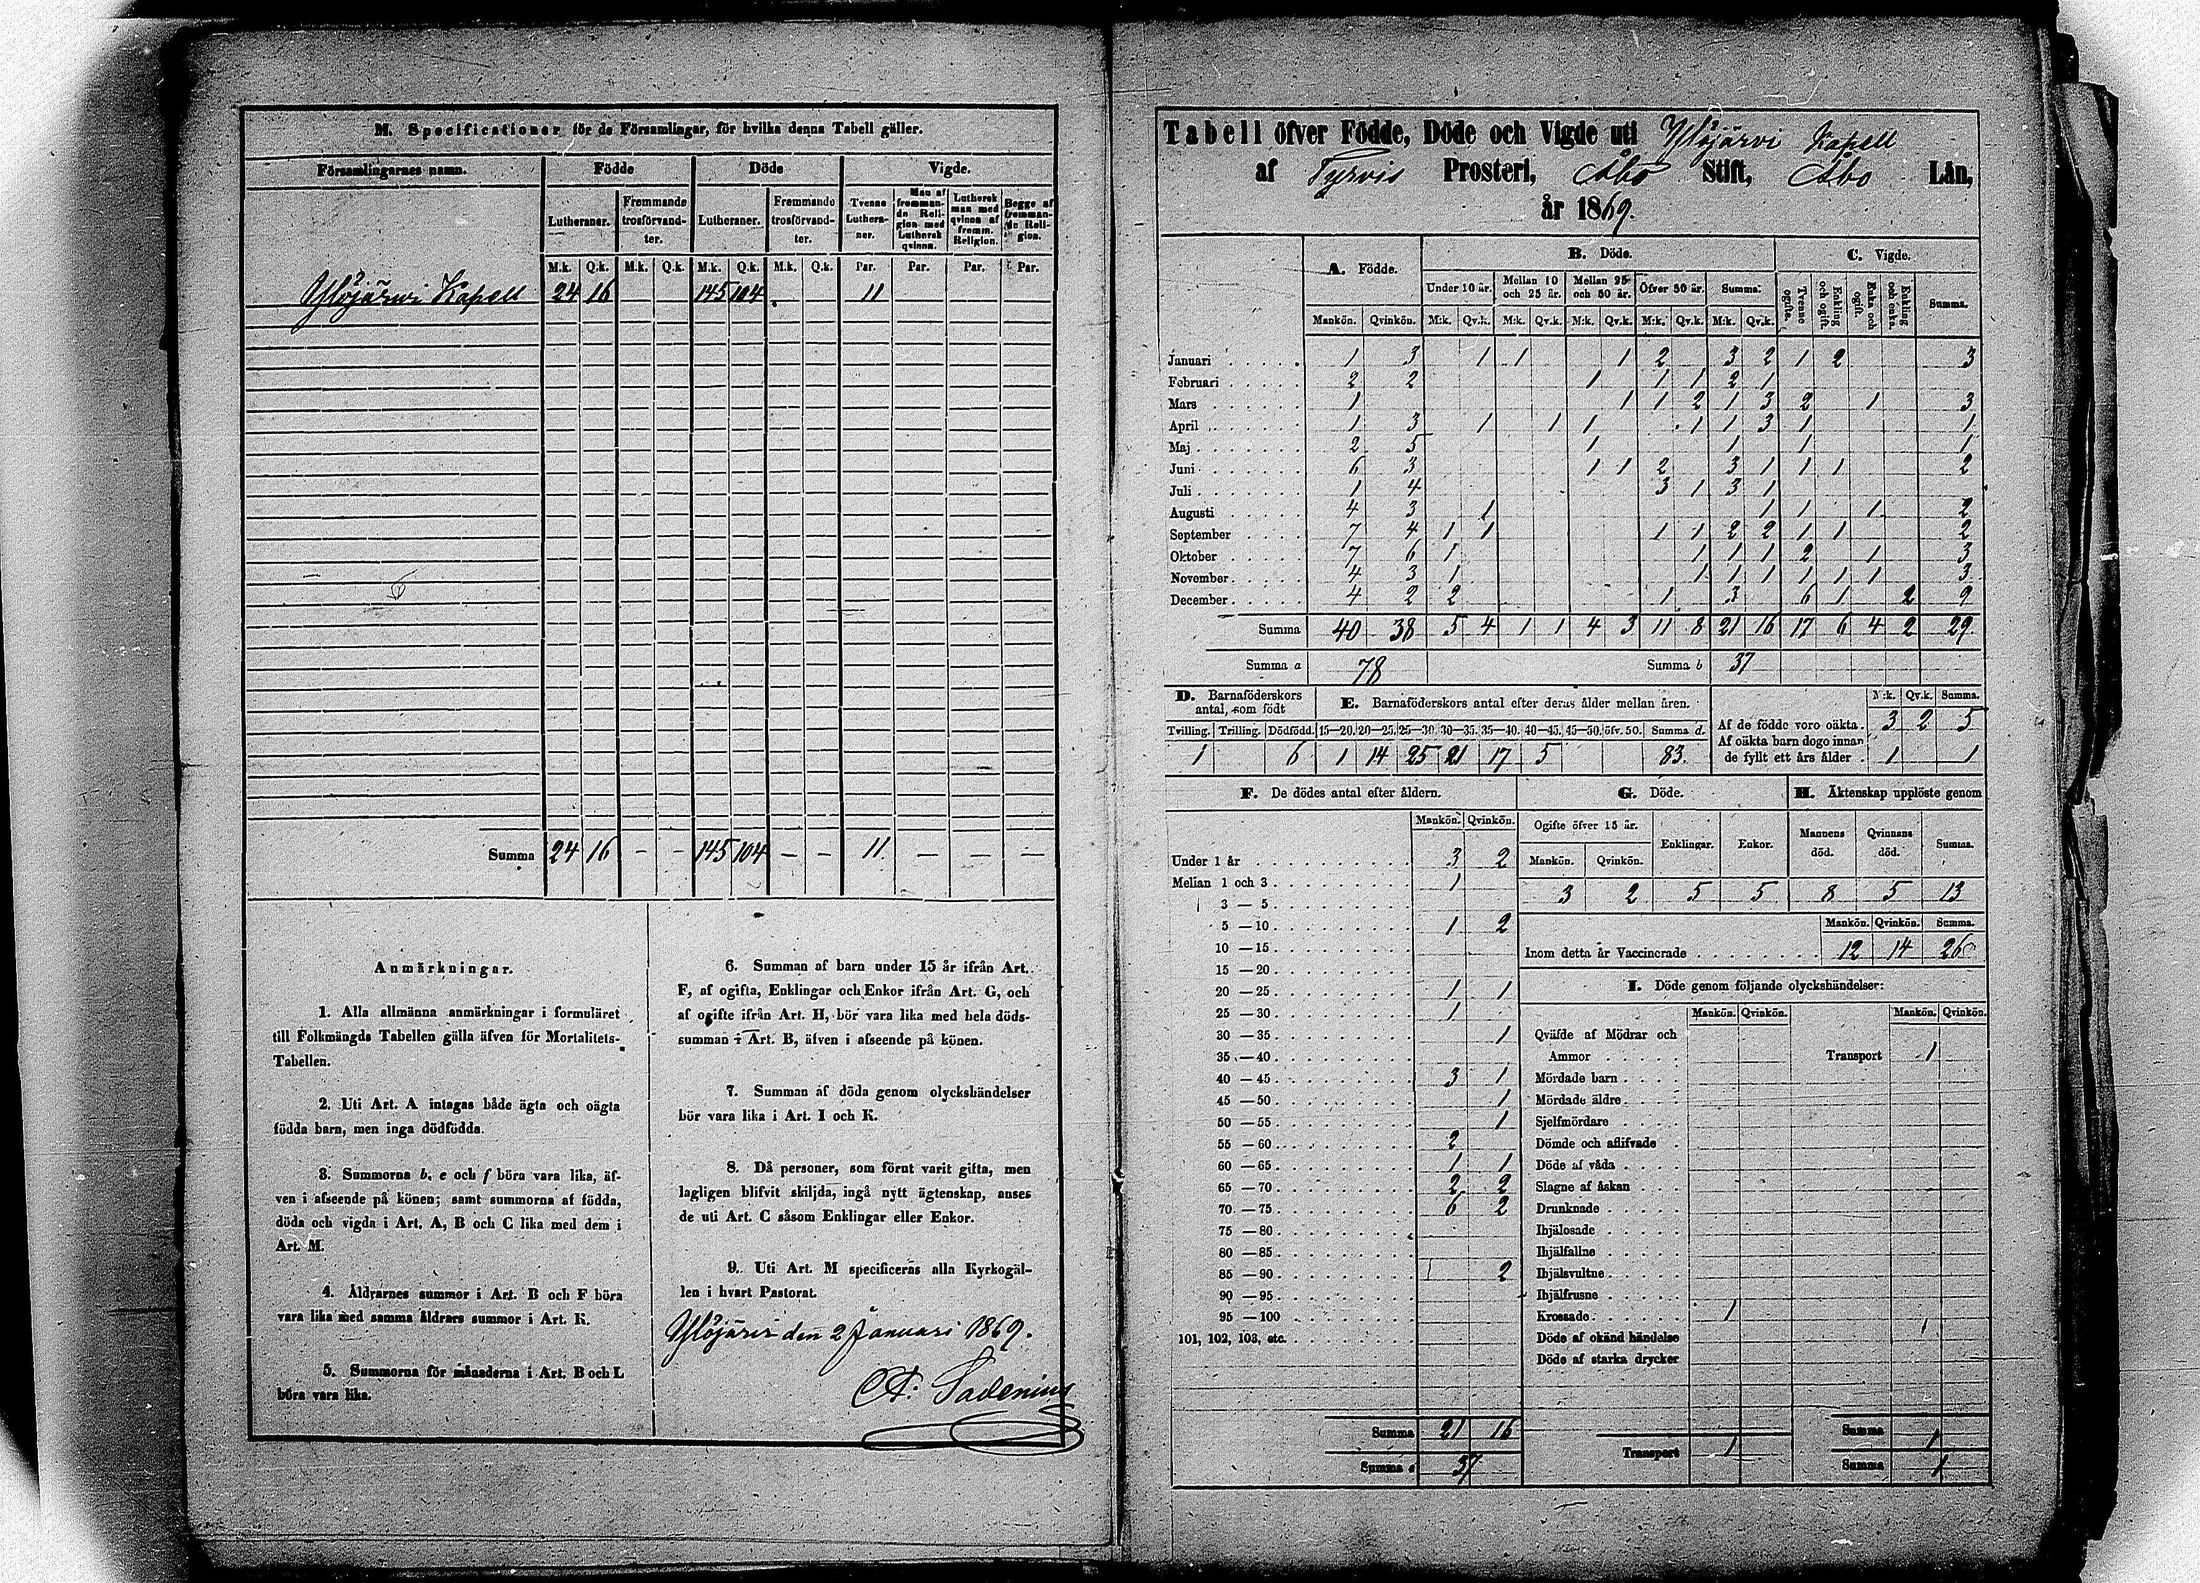 M. Specificationer för de Församlingar, för hvilka denna Tabell gäller.
Församlingarnes namn. Födde Döde Vigde.
Lutheraner. Fremmande trosförvandter. Lutheraner. Fremmande trosförvandter. Tvenne Lutheraner. Man af fremmande Religion med Luthersk qvinna. Luthersk man med qvinna af fremm. Religion. Begge af fremmande Religion.
M.k. Q.k. M.k. Q.k. M.k. Q.k. M.k. Q.k. Par. Par. Par. Par.
Ylöjärwi Kapell 24 16 145 104 11
Summa 24 16 – – 145 104 – – 11 – – –
Anmärkningar.
1. Alla allmänna anmärkningar i formuläret
till Folkmängds Tabellen gälla äfven för Mortalitets-
Tabellen.
2. Uti Art. A intagas både ägta och oägta
födda barn, men inga dödfödda.
3. Summorna b, e och f böra vara lika, äf-
ven i afseende på könen; samt summorna af födda,
döda och vigda i Art. A, B och C lika med dem i
Art. M.
4. Åldrarnes summor i Art. B och F böra
vara lika med samma åldrars summor i Art. K.
5. Summorna för månaderna i Art. B och L
böra vara lika.
6. Summan af barn under 15 år ifrån Art.
F, af ogifta, Enklingar och Enkor ifrån Art. G, och
af ogifte ifrån Art. H, bör vara lika med hela döds-
summan i Art. B, äfven i afseende på könen.
7. Summan af döda genom olyckshändelser
bör vara lika i Art. I och K.
8. Då personer, som förut varit gifta, men
lagligen blifvit skiljda, ingå nytt ägtenskap, anses
de uti Art. C såsom Enklingar eller Enkor.
9. Uti Art. M specificeras alla Kyrkogäl-
len i hvart Pastorat.
Ylöjärvi den 2 Januari 1869.
Tabell öfver Födde, Döde och Vigde uti Ylöjärvi Kapell
af Tyrvis Prosteri, Åbo Stift, Åbo Län,
år 1869.
A. Födde. B. Döde. C. Vigde.
Under 10 år. Mellan 10 och 25 år. Mellan 25 och 50 år. Öfver 50 år. Summa. Tvenne ogifte. Enkling och ogift. Enka och ogift. Enkling och enka. Summa.
Mankön. Qvinkön. M:k. Qv.k. M:k. Qv.k. M:k. Qv.k. M:k. Qv.k. M:k. Qv.k.
Januari 1 3 1 1 1 2 3 2 1 2 3
Februari 2 2 1 1 1 2 1
Mars 1 1 1 2 1 3 2 1 3
April 1 3 1 1 1 1 1 3 1 1
Maj 2 5 1 1 1 1
Juni 6 3 1 1 2 3 1 1 1 2
Juli 1 4 3 1 3 1
Augusti 4 3 1 1 1 1 2
September 7 4 1 1 1 1 2 2 1 1 2
Oktober 7 6 1 1 1 1 2 1 3
November 4 3 1 1 1 1 1 1 1 3
December 4 2 2 1 3 6 1 2 9
Summa 40 38 5 4 1 1 4 3 11 8 21 16 17 6 4 2 29
Summa a 78 Summa b 37
D. Barnaföderskors antal, som födt
E. Barnaföderskors antal efter deras ålder mellan åren.
M:k. Qv.k. Summa.
Tvilling. Trilling. Dödfödd. 15—20. 20—25. 25—30. 30—35. 35—40. 40—45. 45—50. öfv. 50. Summa d.
1 6 1 14 25 21 17 5 83.
Af de födde voro oäkta 3 2 5
Af oäkta barn dogo innan
de fyllt ett års ålder 1 1
F. De dödes antal efter åldern.
Mankön. Qvinkön.
Under 1 år 3 2
Mellan 1 och 3 1
3 — 5
5 —10 1 2
10 —15
15 —20
20 —25 1 1
25 —30 1
30 —35 1
35 —40
40 —45 3 1
45 —50 1
50 —55 1
55 —60 2
60 —65 1 1
65 —70 2 2
70 —75 6 2
75 —80
80 —85
85 —90 2
90 —95
95 —100
101, 102, 103, etc.
Summa 21 16
Summa e 37
G. Döde. H. Äktenskap upplöste genom
Ogifte öfver 15 år. Enklingar. Enkor. Mannens död. Qvinnans död. Summa.
Mankön. Qvinkön.
3 2 5 5 8 5 13
Mankön. Qvinkön. Summa.
Inom detta år Vaccinerade 12 14 26
I. Döde genom följande olyckshändelser:
Mankön. Qvinkön. Mankön. Qvinkön.
Qväfde af Mödrar och
Ammor Transport 1
Mördade barn
Mördade äldre
Sjelfmördare
Dömde och aflifvade
Döde af våda
Slagne af åskan
Drunknade
Ihjälosade
Ihjälfallne
Ihjälsvultne
Ihjälfrusne
Krossade 1
Döde af okänd händelse
Döde af starka drycker
Summa 1
Transport 1
Summa 1